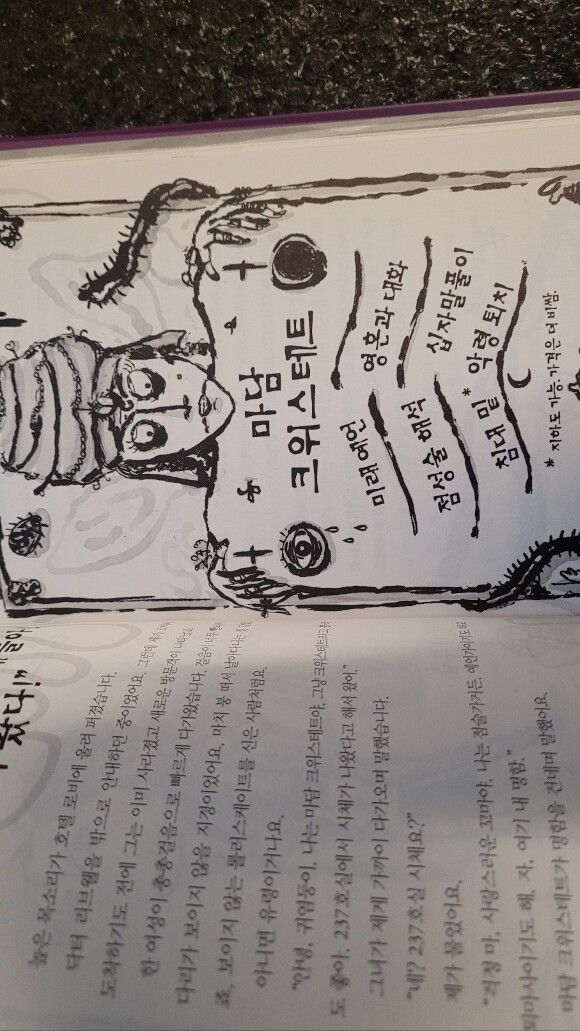 찼다!”
높은 목소리가 호텔 로비에 울려 퍼졌습니다.
닥터 리브웰을 밖으로 안내하던 중이었어요. 그런데 제가
도착하기도 전에 그는 이미 사라졌고 새로운 방문객이
한 여성이 종종걸음으로 빠르게 다가왔습니다. 걸음이 너무
다리가 보이지 않을 지경이었어요. 마치 붕 떠서 날아다니는
죠. 보이지 않는 롤러스케이트를 신은 사람처럼요.
아니면 유령이거나요.
“안녕, 귀염둥이. 나는 마담 크위스테트야. 그냥 크위스테트라고
도 좋아. 237호실에서 시체가 나왔다고 해서 왔어.”
그녀가 제게 가까이 다가오며 말했습니다.
“네? 237호실 시체요?”
제가 물었어요.
“걱정 마, 사랑스러운 꼬마야. 나는 점술가거든. 예언가이기도
퇴마사이기도 해. 자, 여기 내 명함.”
마담 크위스테트가 명함을 건네며 말했어요.
마담
크위스테트
미래 예언
영혼과 대화
점성술 해석
십자말풀이
침대 밑* 악령 퇴치
* 지하도 가능 가격은 더 비쌈.